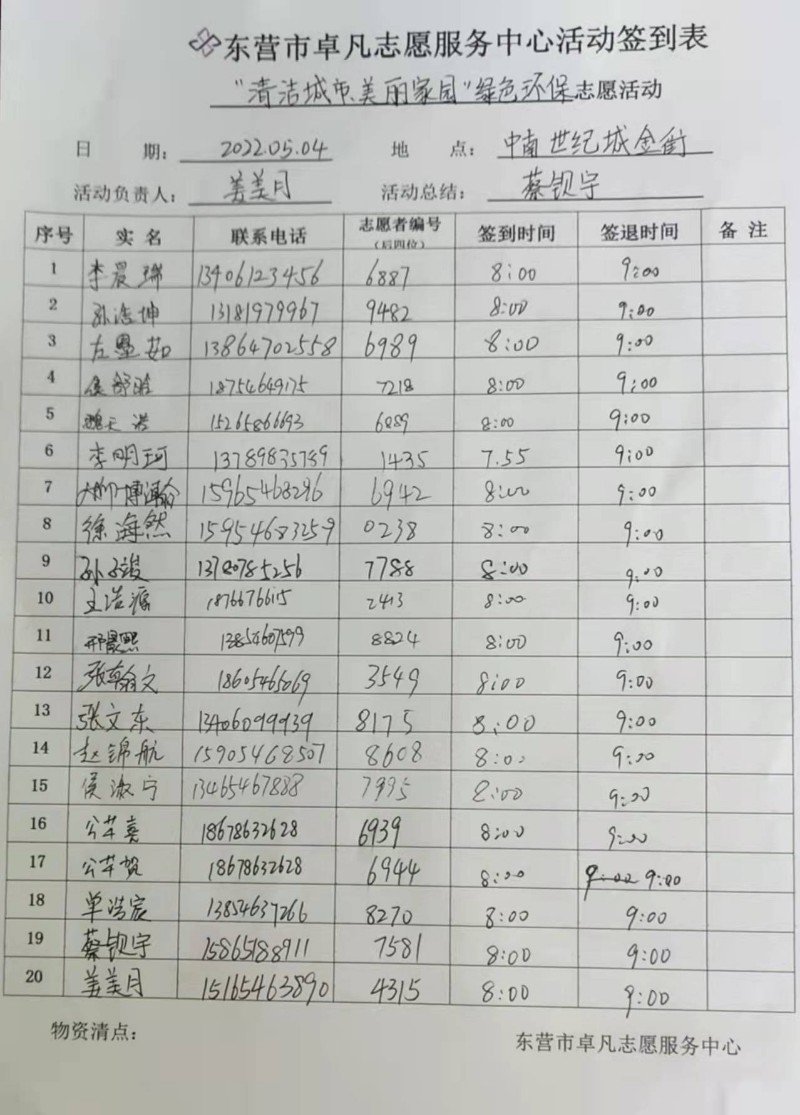 东营市卓凡志愿服务中心活动签到表
"清洁城市、美丽家园"绿色环保志愿活动
日 期: 2022.05.04 地 点: 中南世纪城金街
活动负责人: 姜美月 活动总结: 蔡钡宇
序号 实 名 联系电话 志愿者编号(后四位) 签到时间 签退时间 备 注
1 李晨瑞 13406123456 6887 8:00 9:00
2 孙浩坤 13181979967 9482 8:00 9:00
3 左墨茹 13864702558 6989 8:00 9:00
4 18754649175 7218 8:00 9:00
5 魏天浩 15265866693 6889 8:00 9:00
6 李明珂 13789835789 1435 7.55 9:00
7 15965468296 6942 8:00 9:00
8 徐海然 15954683259 0238 8:00 9:00
9 孙子竣 13780785256 7788 8:00 9:00
10 王浩源 1876676615 2413 8:00 9:00
11 邢晨熙 13854607599 8824 8:00 9:00
12 张翰文 18605465069 3549 8:00 9:00
13 张文东 13406099939 8175 8:00 9:00
14 赵锦航 15905468507 8608 8:00 9:00
15 侯淑宁 13465467888 7995 8:00 9:00
16 公苹 18678632628 6939 8:00 9:00
17 公苹 18678632628 6944 8:00 9:00 9:00
18 单浩宸 13854637266 8270 8:00 9:00
19 蔡钡宇 15865188911 7581 8:00 9:00
20 姜美月 15165463890 4315 8:00 9:00
物资清点:
东营市卓凡志愿服务中心